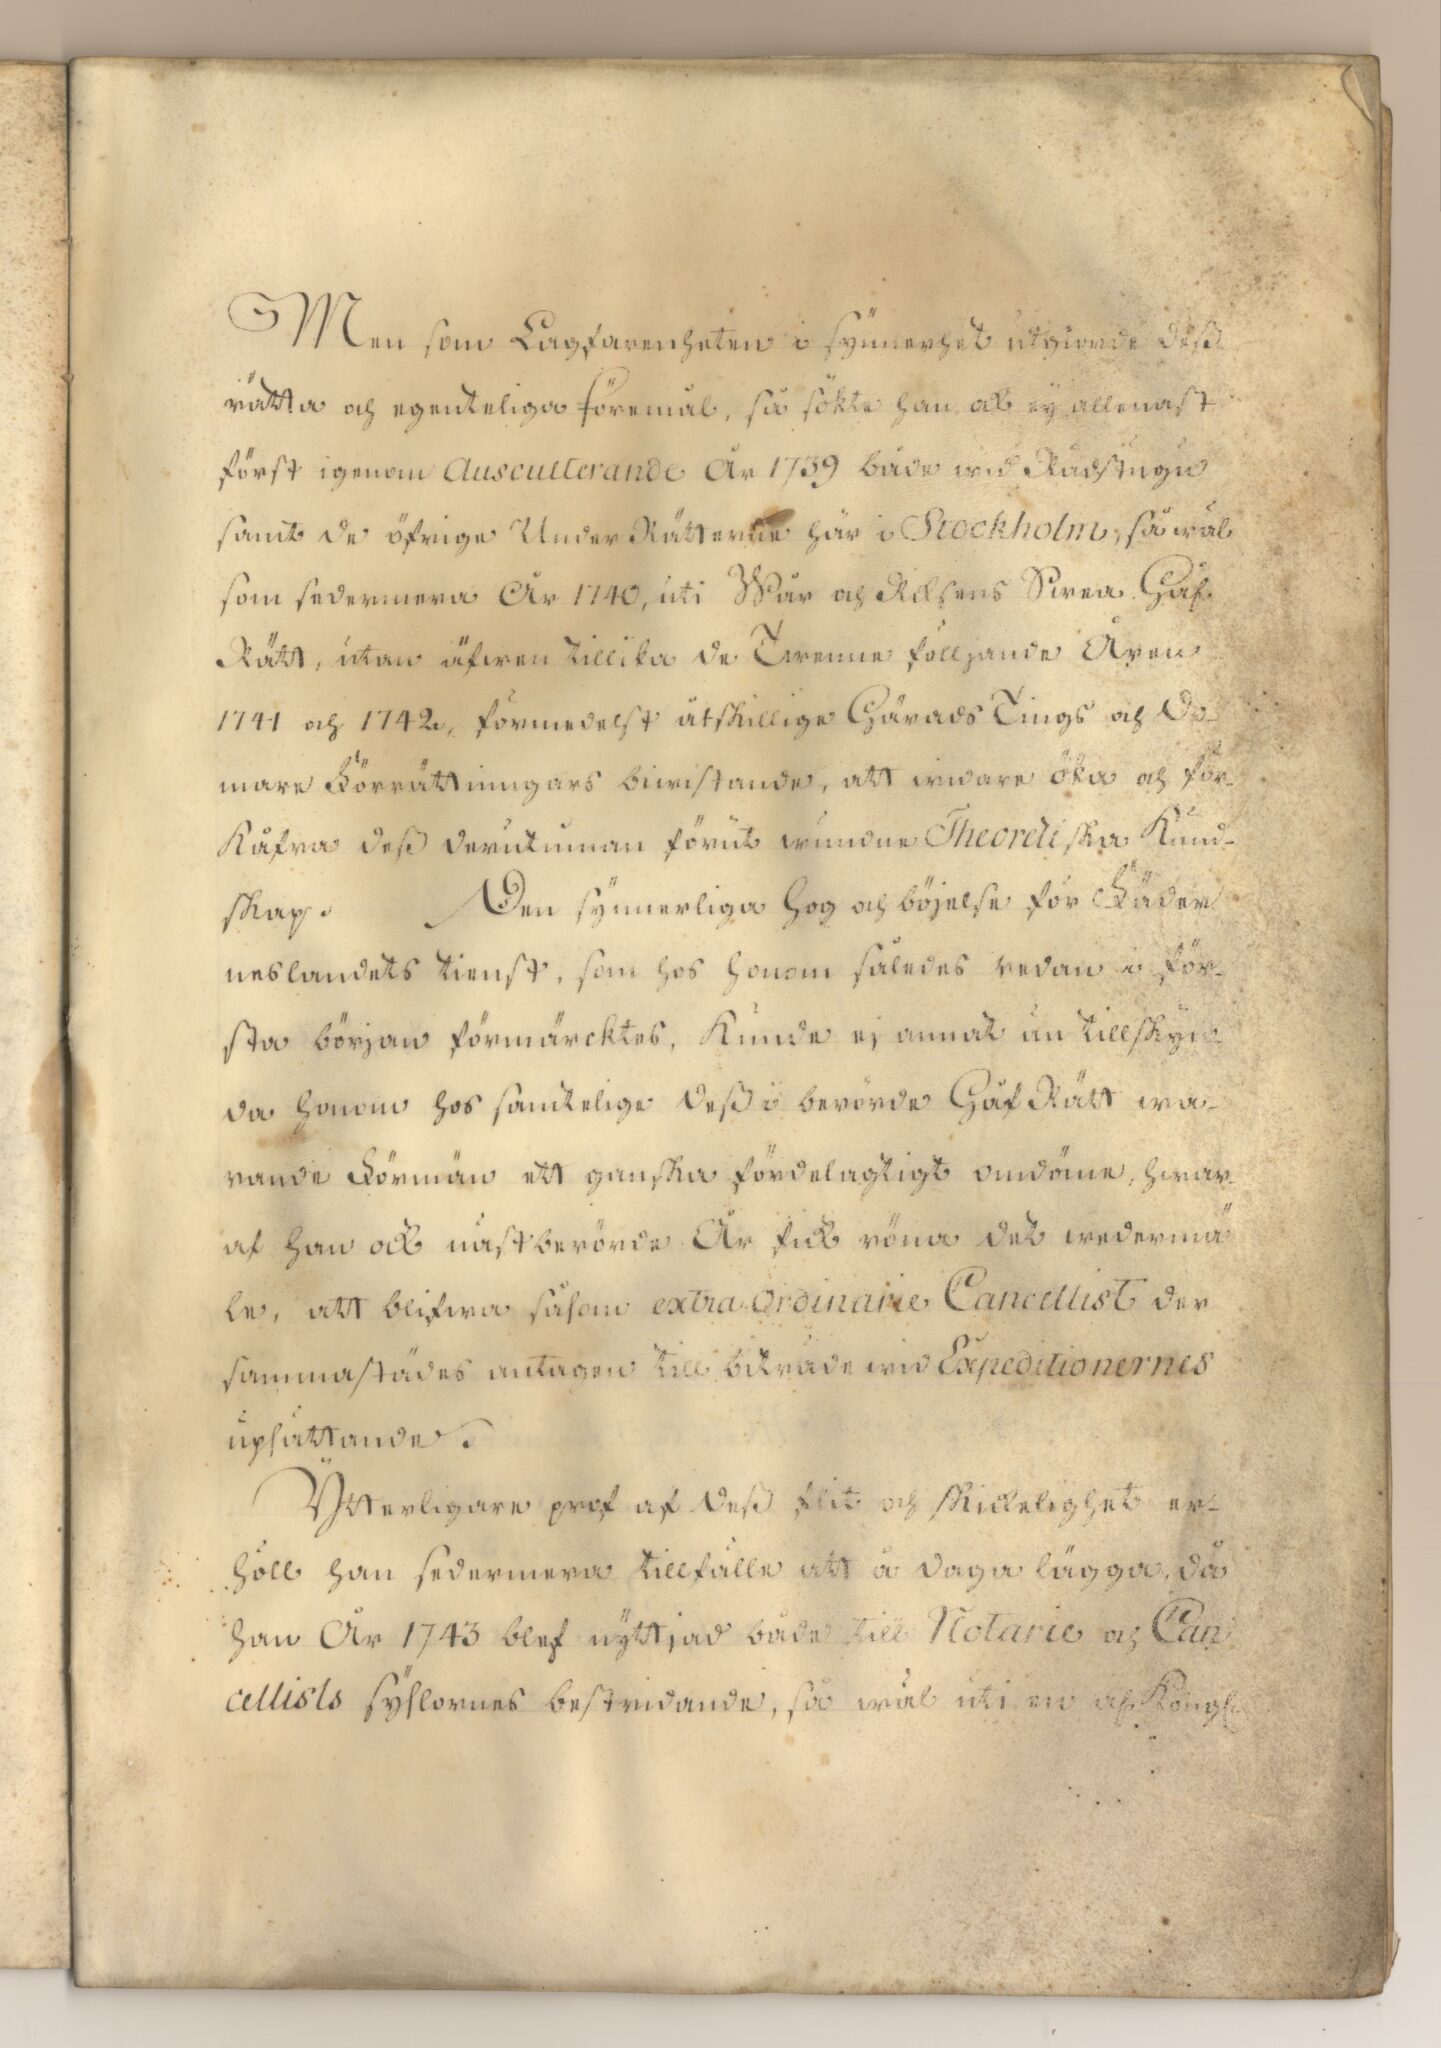 Men som Lagfarenheten i synnerhet utgiorde deß
rätta och egenteliga föremål, så sökte han ock ey allenast
först igenom Ausculterande År 1739 både wid Rådstugu
samt de öfrige Under Rätterne här i Stockholm, så wäl
som sedermera År 1740, uti Wår och Riksens Swea Håf
Rätt, utan äfwen tillika de Twenne följande Åren
1741 och 1742, förmedelst åtskillige Härads Tings och Do-
mare Förrättningars biwistande, att widare öka och för-
kåfra deß derutinnan förut wundne Theoretiska Kund-
skap. Den synnerliga hog och böjelse för Fäder
neslandets tienst, som hos honom således redan i för-
sta början förmärcktes, kunde ej annat än tillskyn-
da honom hos samtelige deß i berörde Håf Rätt wa-
rande Förmän ett ganska fördelagtigt omdöme, hwar-
af han ock nästberörde År fick röna det wedermä
le, att blifwa såsom extra Ordinarie Cancellist der
sammastädes antagen till biträde wid Expeditionernes
upsättande.
Ytterligare prof af deß flit och skickelighet er-
höll han sedermera tillfälle att å daga lägga, då
han År 1743 blef nyttjad både till Notarie och Can
cellists syslornes bestridande, så wäl uti en af Kongl.